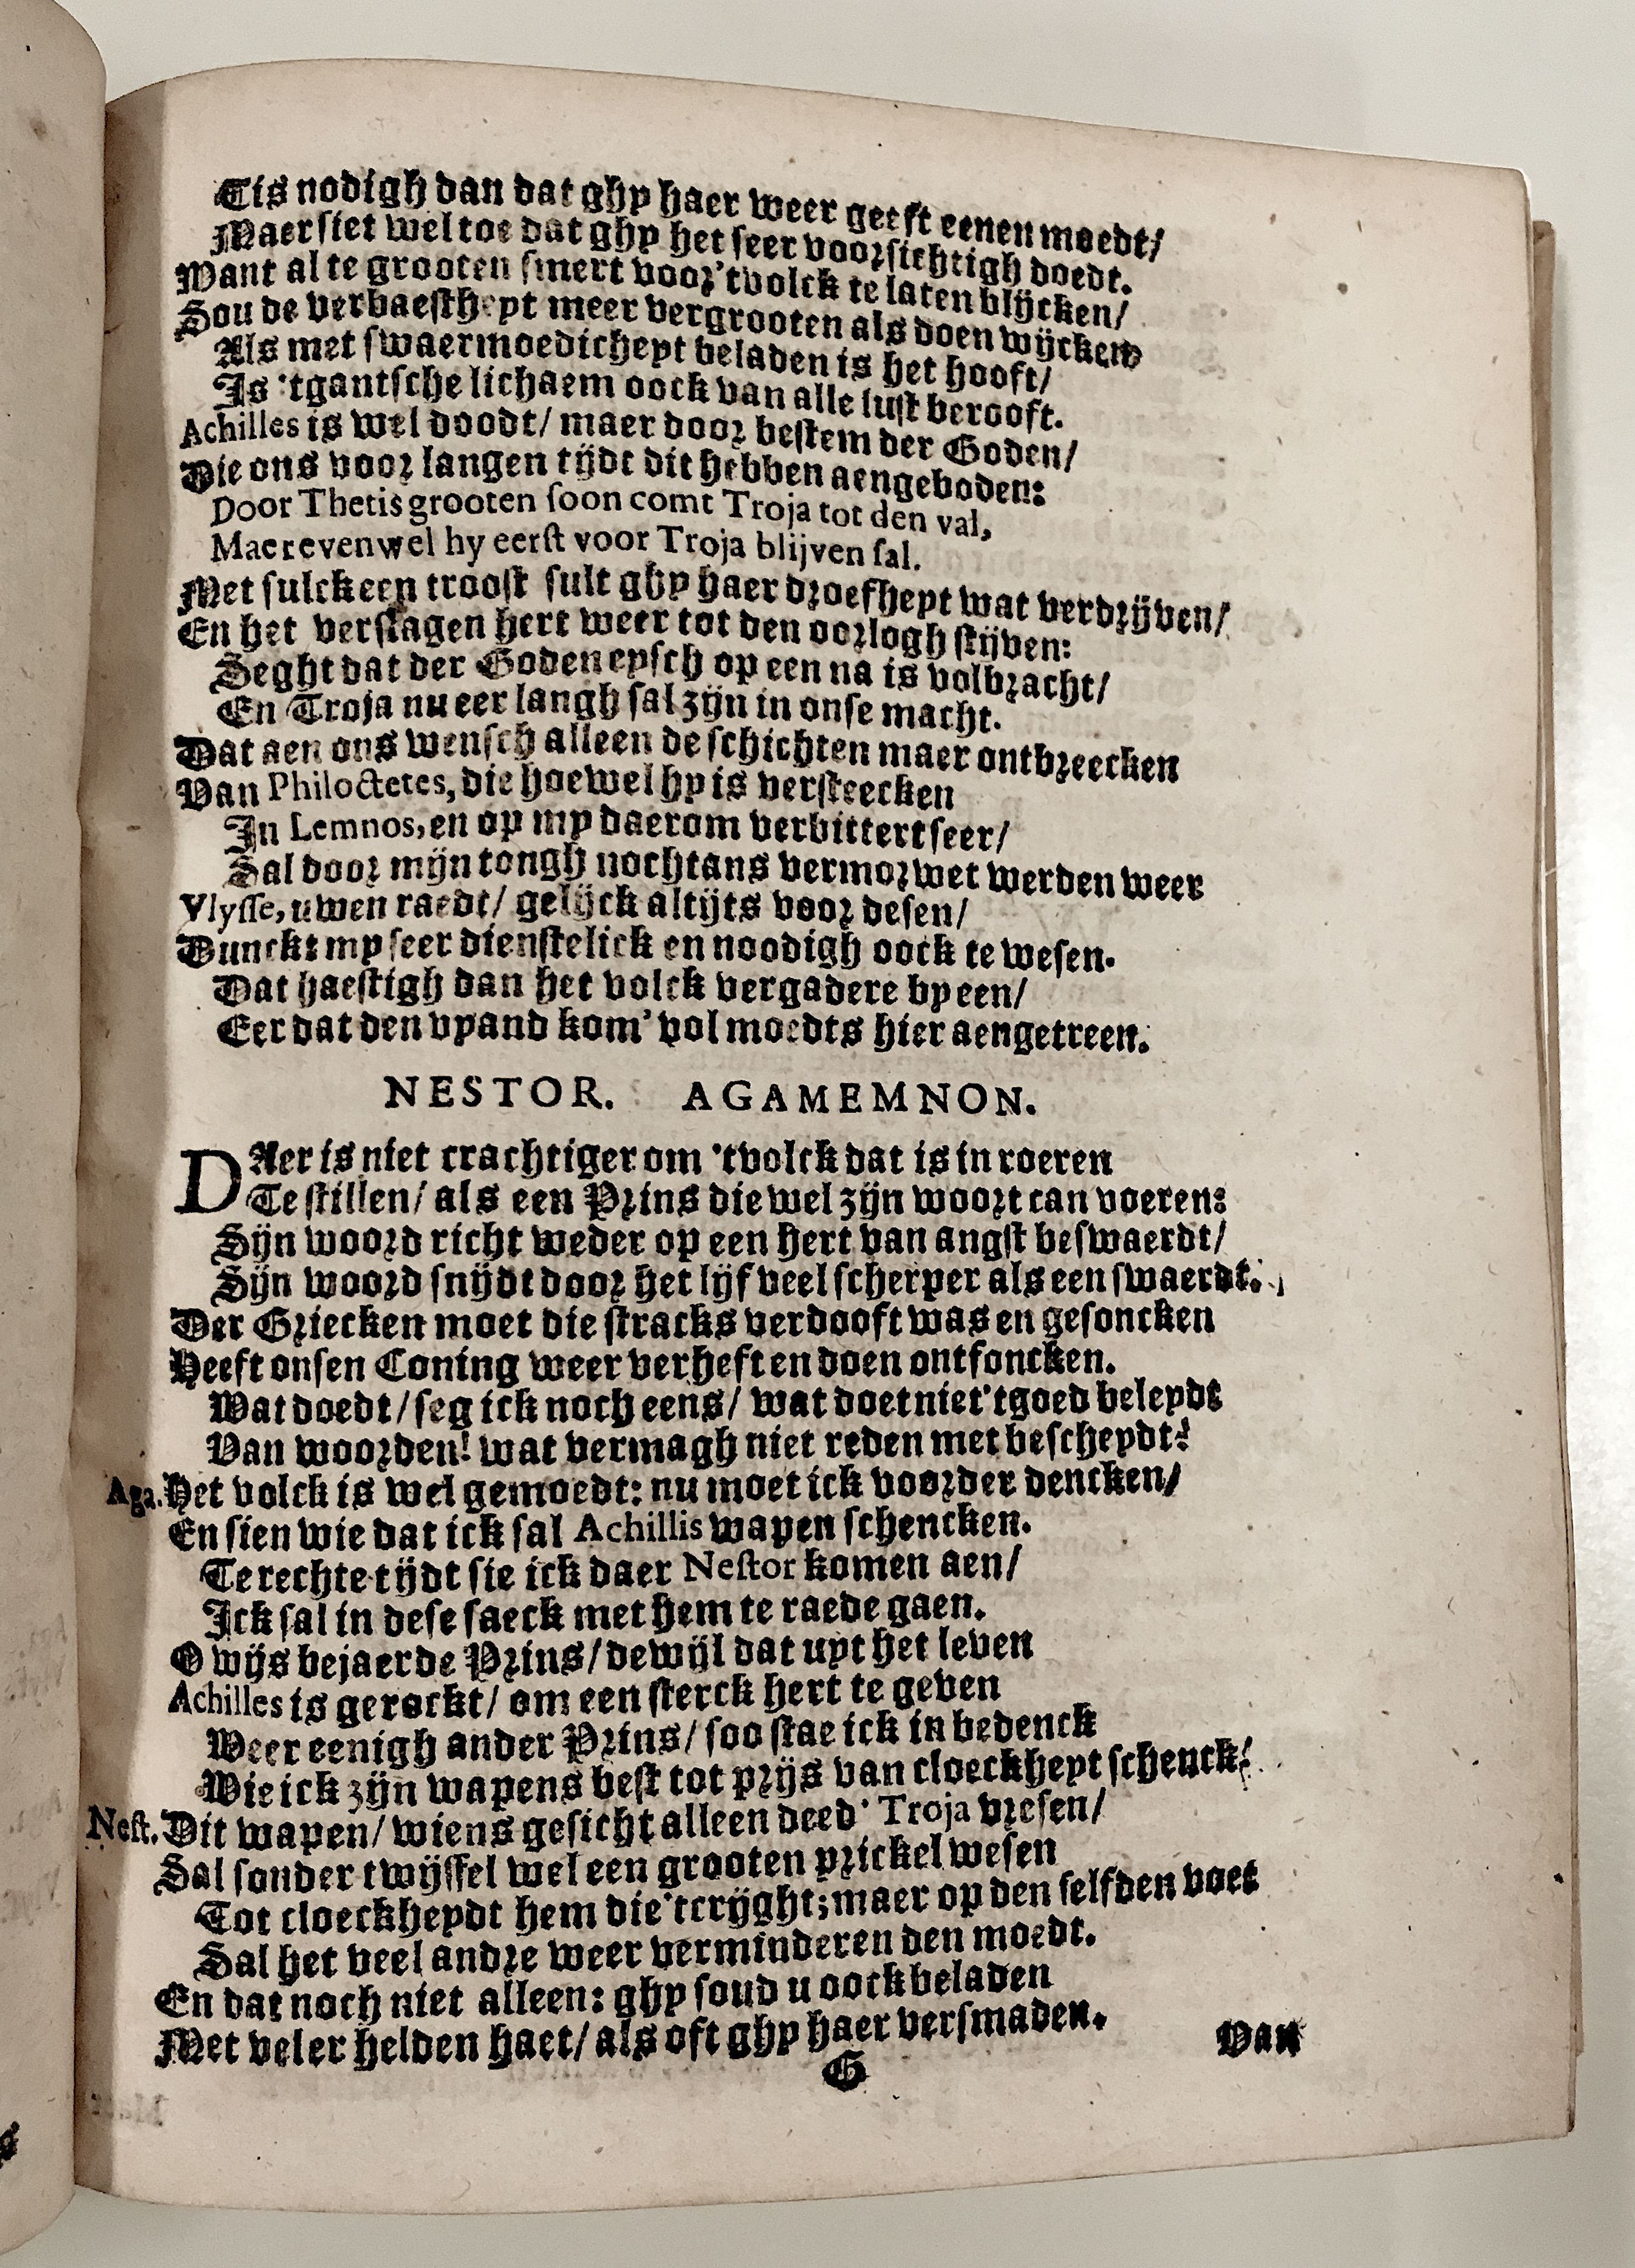 Tis nodigh dan dat ghy haer weer geeft eenen moedt/
Maer siet wel toe dat ghy het seer voorsichtigh doedt.
Want al te grooten smert voor 'tvolck te laten blijcken/
Sou de verbaestheyt meer vergrooten als doen wijcken
Als met swaermoedicheyt beladen is het hooft/
Is 'tgantsche lichaem oock van alle lust berooft.
Achilles is wel doodt/ maer door bestem der Goden/
Die ons voor langen tijdt dit hebben aengeboden:
Door Thetis grooten soon comt Troja tot den val,
Maer evenwel hy eerst voor Troja blijven sal.
Met sulck een troost sult ghy haer droefheyt wat verdrijven/
En het verslagen hert weer tot den oorlogh stijven:
Seght dat der Goden eysch op een na is volbracht/
En Troja nu eer langh sal zijn in onse macht.
Dat aen ons wensch alleen de schichten maer ontbreecken
Van Philoctetes, die hoewel hy is versteecken
In Lemnos, en op my daerom verbittert seer/
Sal door mijn tongh nochtans vermorwet werden weer
Vlysse, uwen raedt/ gelijck altijts voor desen/
Dunckt my seer dienstelick en noodigh oock te wesen.
Dat haestigh dan het volck vergadere by een/
Eer dat den vyand kom' vol moedts hier aengetreen.
NESTOR. AGAMEMNON.
DAer is niet crachtiger om 'tvolck dat is in roeren
Te stillen/ als een Prins die wel zijn woort can voeren:
Sijn woord richt weder op een hert van angst beswaerdt/
Sijn woord snijdt door het lijf veel scherper als een swaerdt.
Der Griecken moet die stracks verdooft was en gesoncken
Heeft onsen Coning weer verheft en doen ontfoncken.
Wat doedt/ seg ick noch eens/ wat doet niet 'tgoed beleydt
Van woorden! wat vermagh niet reden met bescheydt?
Aga. Het volck is wel gemoedt: nu moet ick voorder dencken/
En sien wie dat ick sal Achillis wapen schencken.
Te rechte tijdt sie ick daer Nestor komen aen/
Ick sal in dese saeck met hem te raede gaen.
O wijs bejaerde Prins/ dewijl dat uyt het leven
Achilles is gerockt/ om een sterck hert te geven
Weer eenigh ander Prins/ soo stae ick in bedenck
Wie ick zijn wapens best tot prijs van cloeckheyt schenck?
Nest. Dit wapen/ wiens gesicht alleen deed' Troja vresen/
Sal sonder twijffel wel een grooten prickel wesen
Tot cloeckheydt hem die 'tcrijght; maer op den selfden voet
Sal het veel andre weer verminderen den moedt.
En dat noch niet alleen: ghy soud u oock beladen
Met veler helden haet/ als oft ghy haer versmaden.
G Van